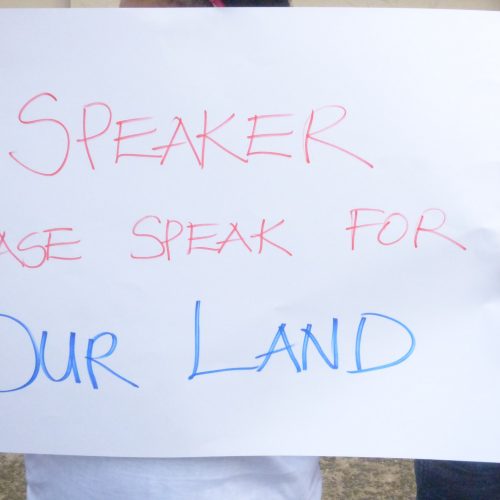 SPEAKER
ASE SPEAK FOR
OUR LAND